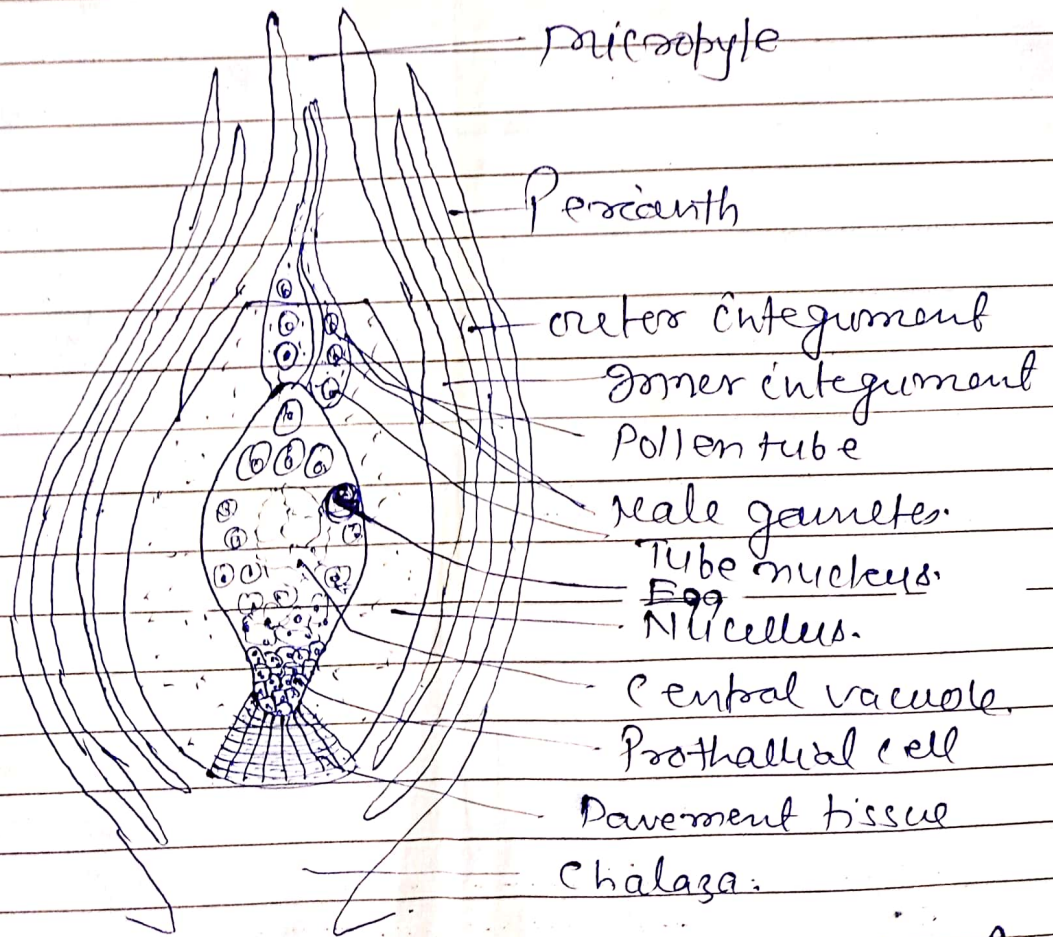 micropyle
Perianth
outer integument
Inner integument
Pollen tube
Male gametes.
Tube nucleus.
Egg
Nucellus.
Central vacuole.
Prothallial cell
Pavement tissue
Chalaza.